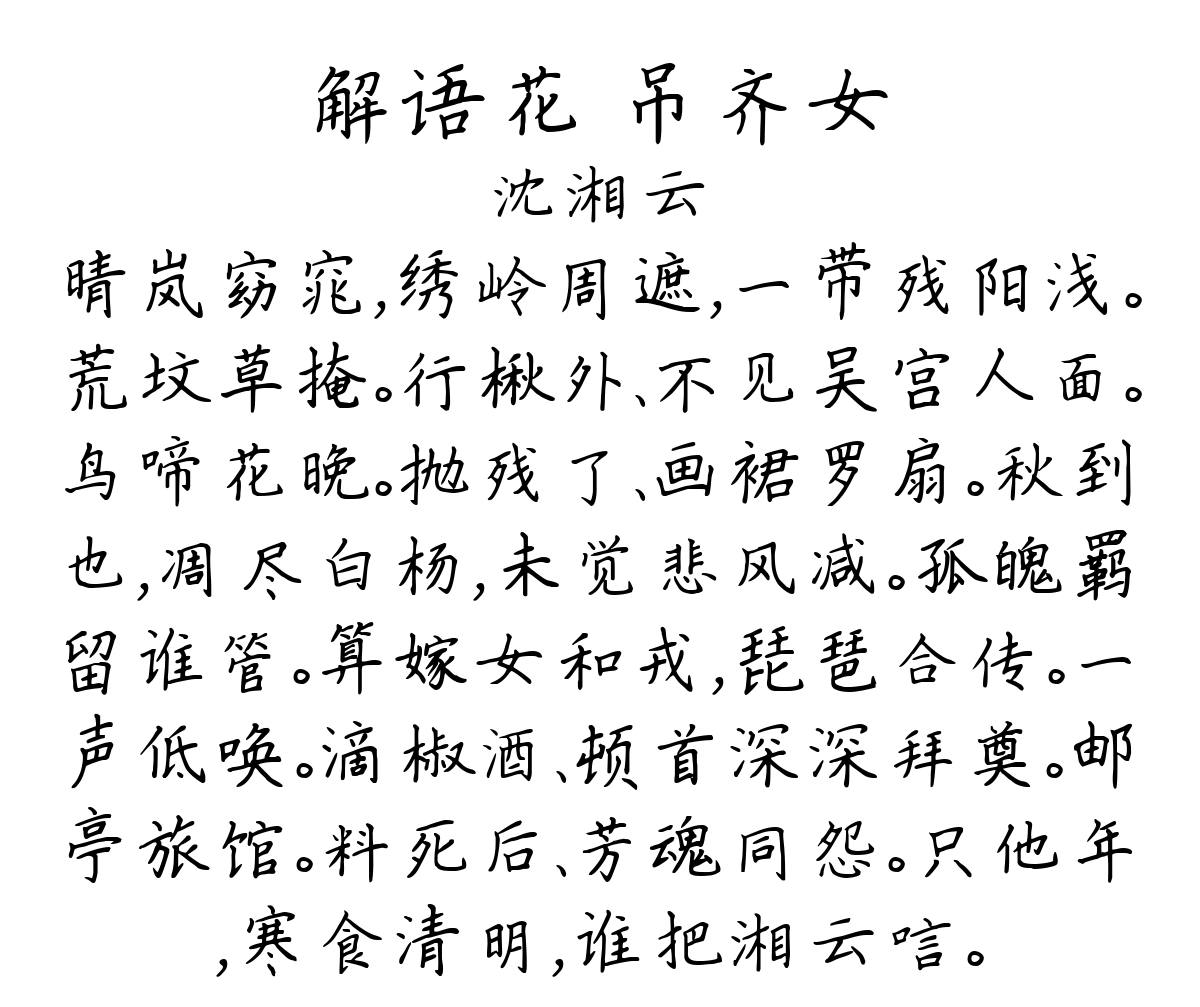 解语花 吊齐女
沈湘云
晴岚窈窕,绣岭周遮,一带残阳浅。
荒坟草掩。行楸外、不见吴宫人面。
鸟啼花晚。抛残了、画裙罗扇。秋到
也,凋尽白杨,未觉悲风减。孤魄羁
留谁管。算嫁女和戎,琵琶合传。一
声低唤。滴椒酒、顿首深深拜奠。邮
亭旅馆。料死后、芳魂同怨。只他年
,寒食清明,谁把湘云唁。